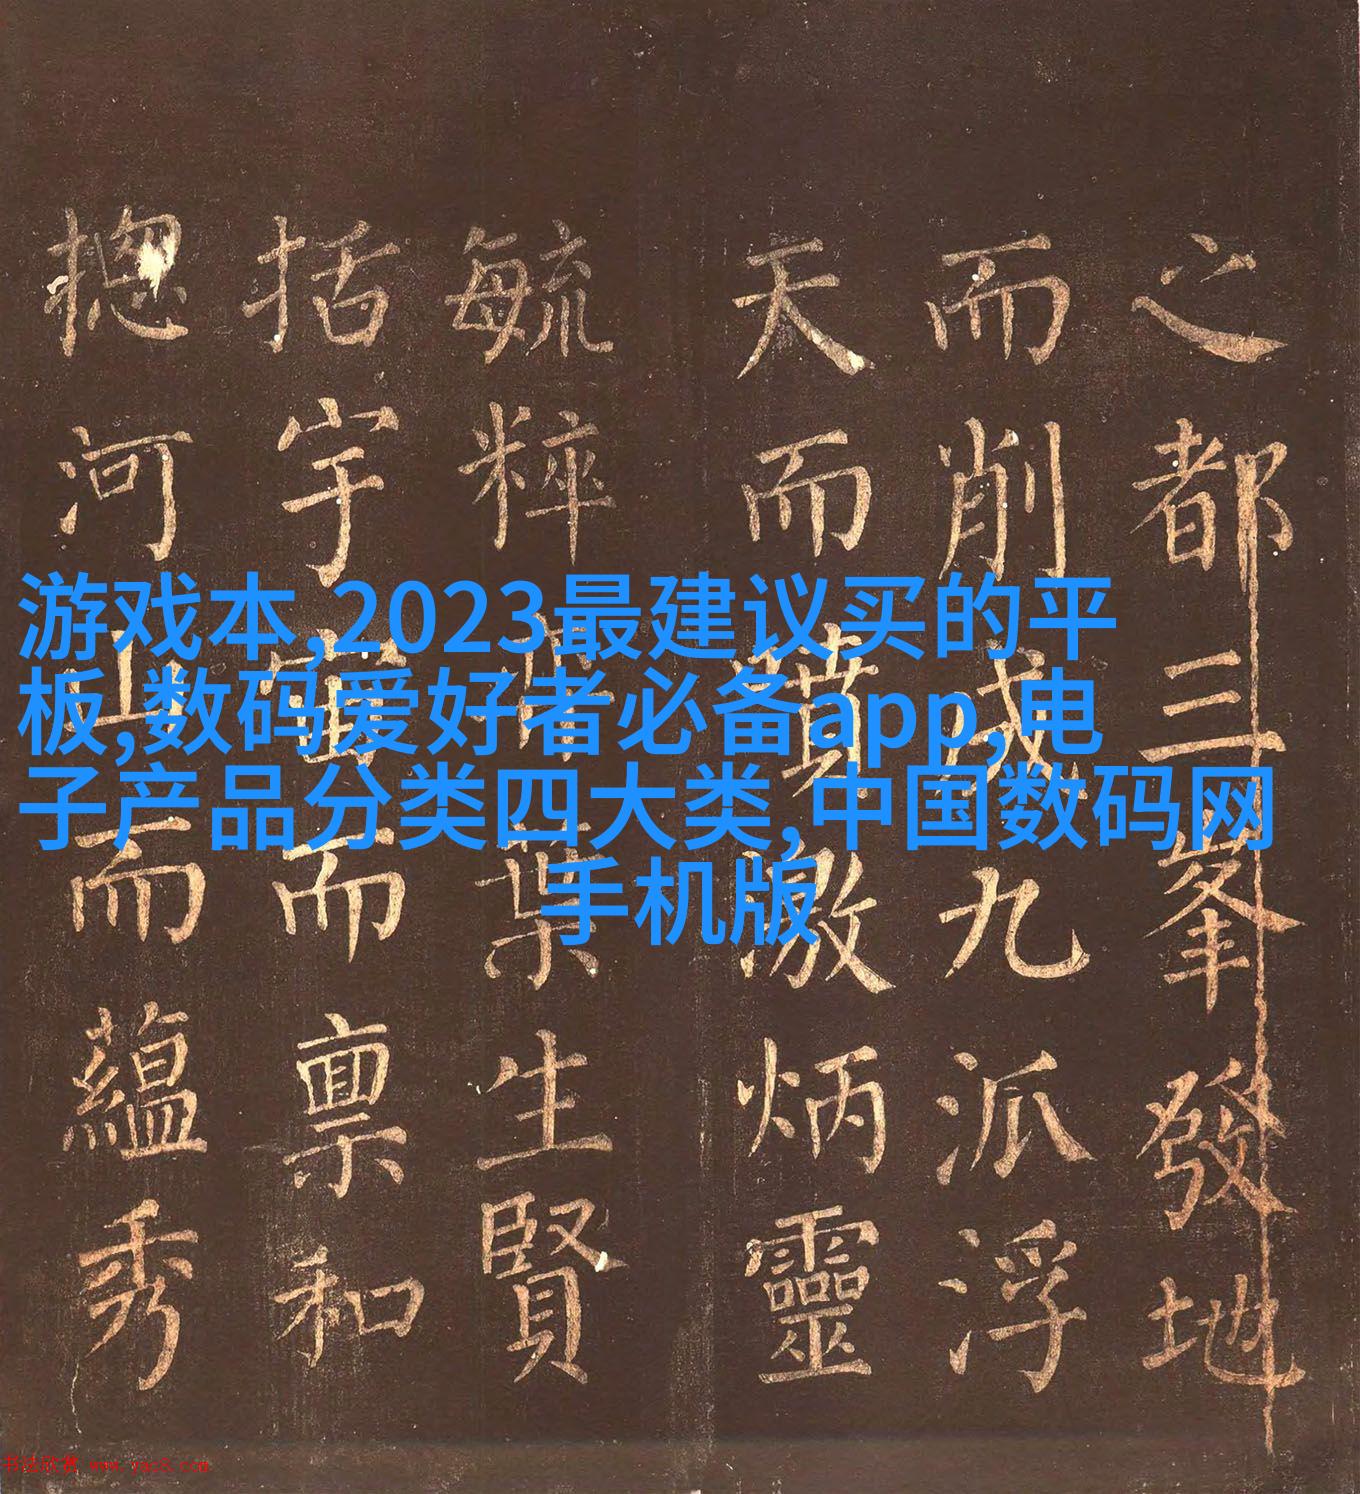 之都三峯發地
而削成九派浮
天而噴激炳靈
毓粹葉生賢
括宇宙而禀和
揔河山而蘊秀
游戏本,2023最建议买的平
板,数码爱好者必备app,电
子产品分类四大类,中国数码网
手机版
书法欣赏 www.yac8.com